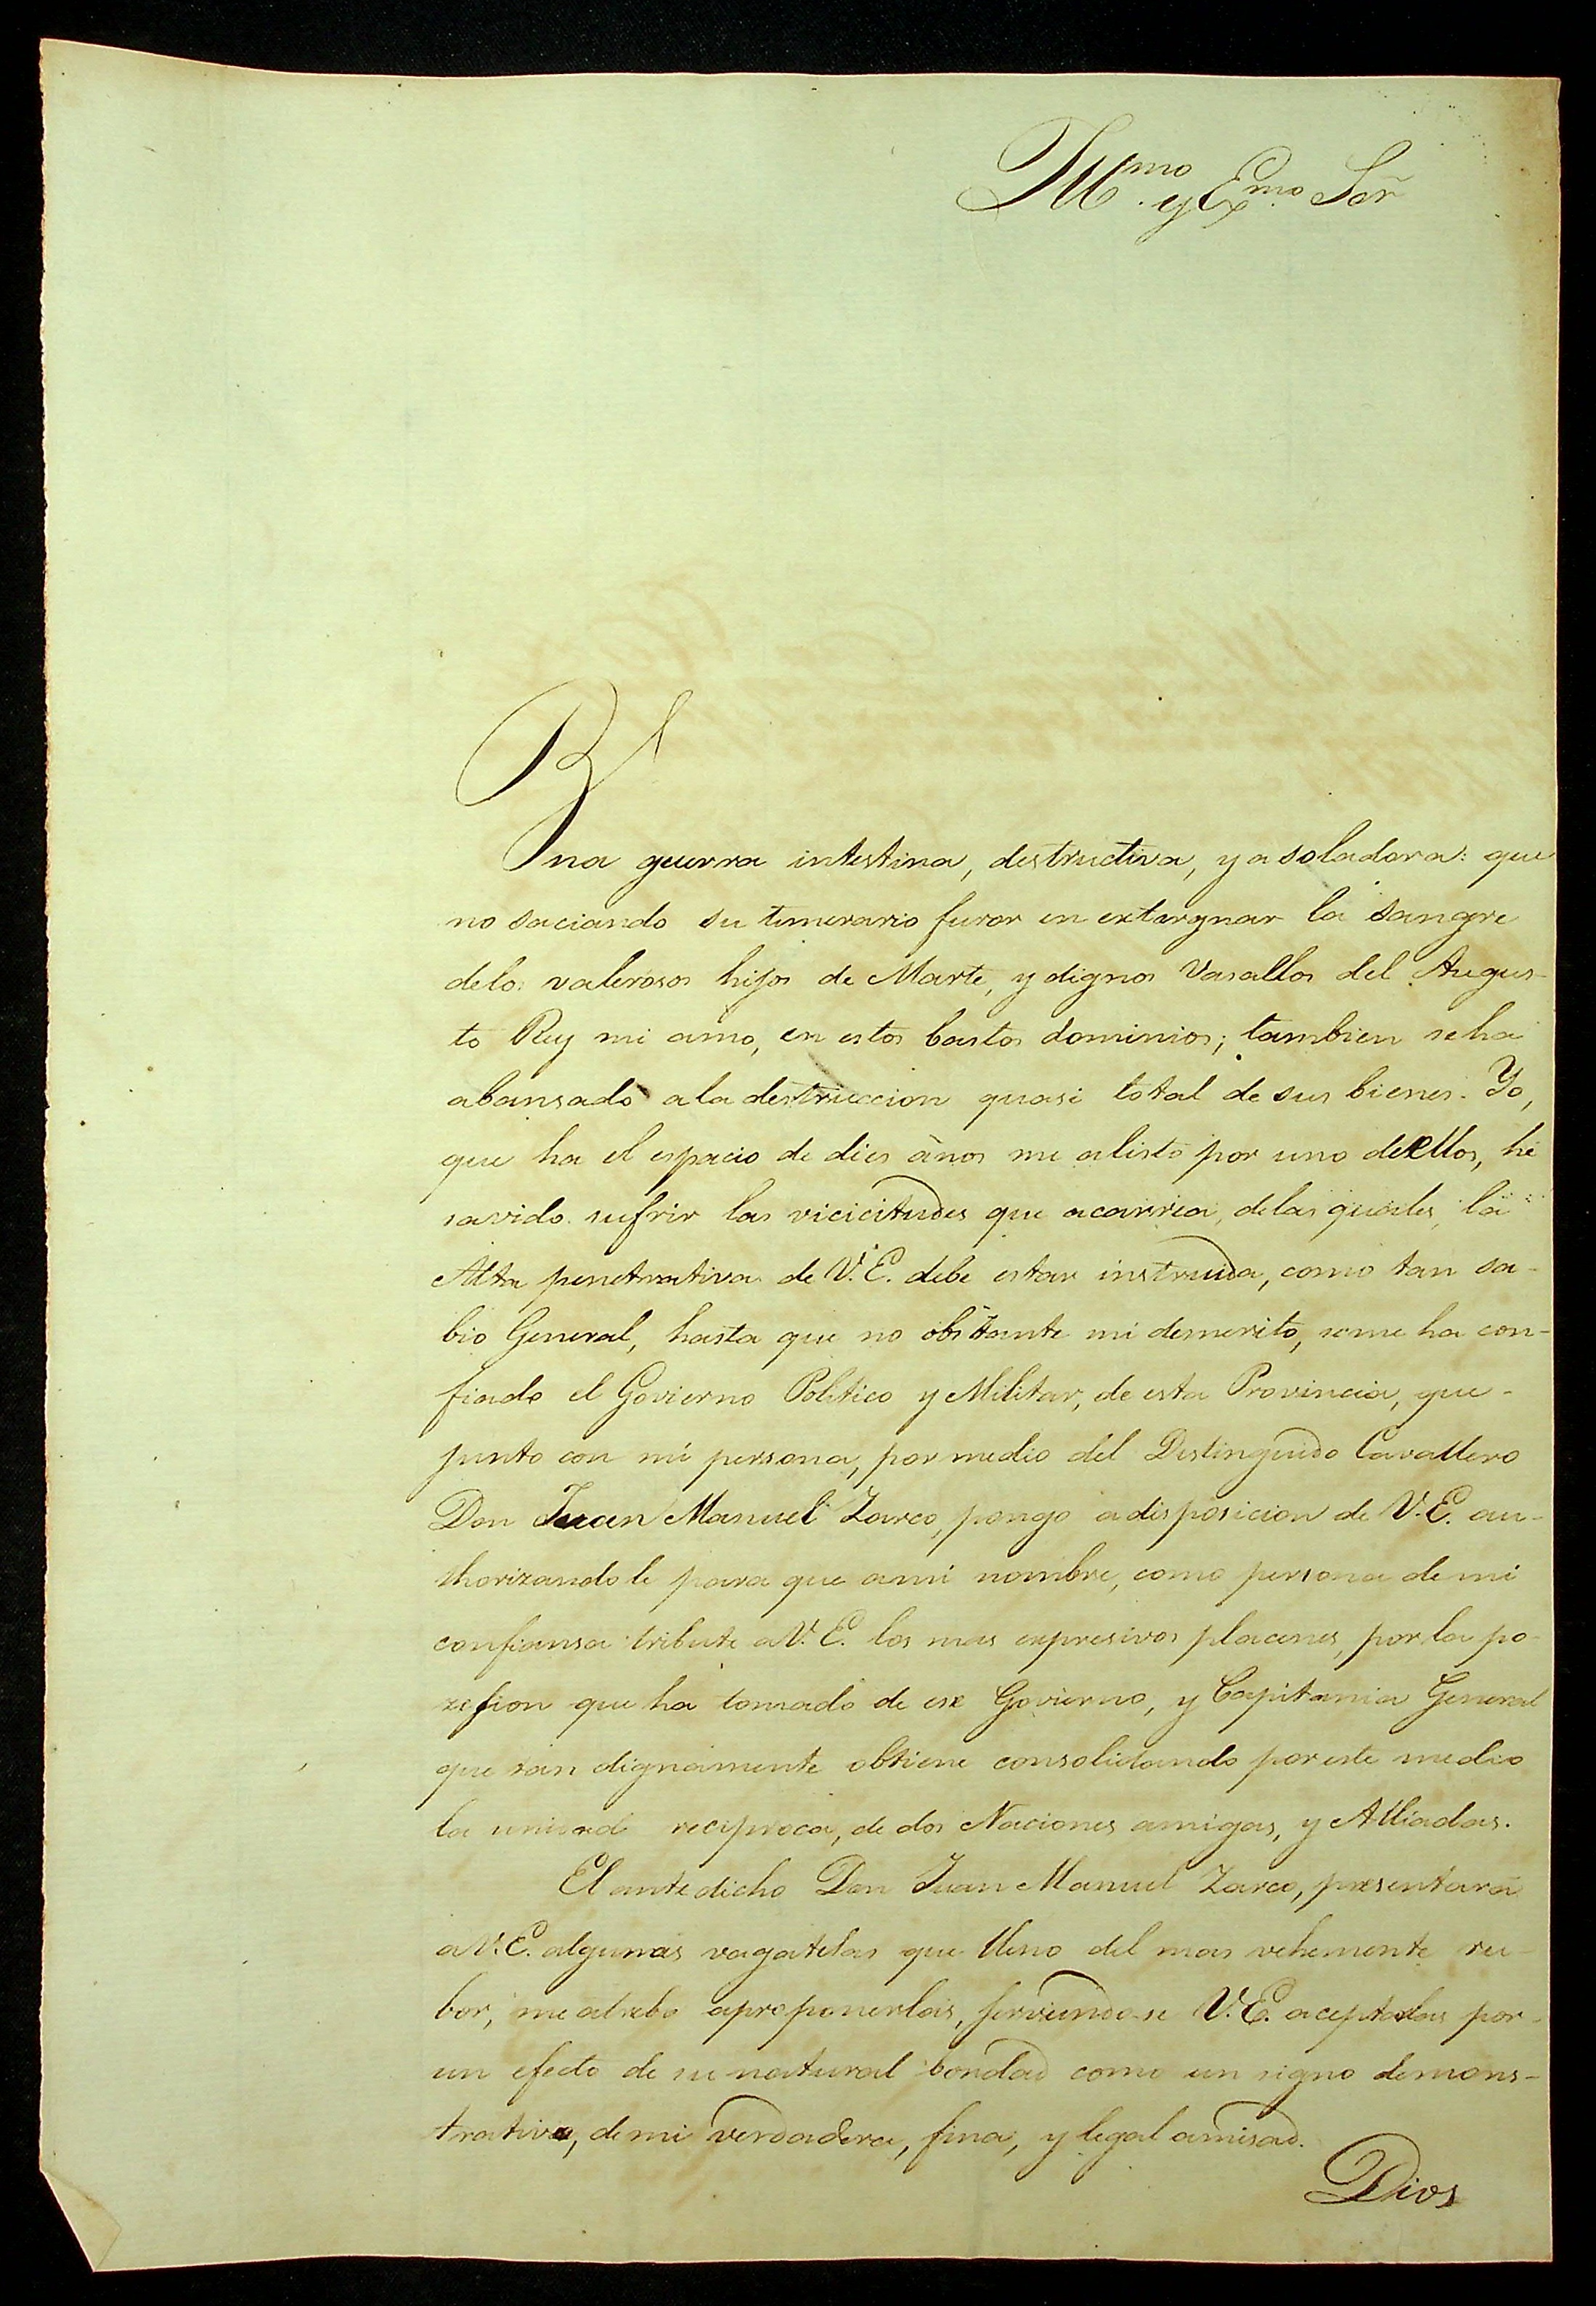 Yllmo. y Exmo. Señ
Una guerra intestina, destructiva, y asoladora: que
no saciando su temerario furor en extergnar la sangre
delos valerosos hijos de Marte, y dignos Vasallos del Augus-
to Rey mi amo, en estos bastos dominios; tambien seha
abansado a la destruccion quasi total de sus bienes. Yo,
que ha el espacio de dies años me alistó por uno deellos, hé
savido sufrir las vicicitudes que acarrea, delas quales, la
Alta penetrativa de V.E. debe estar instruida, como tan sa-
bio General, hasta que no obstante mi demerito, seme ha con-
fiado el Govierno Politico y Militar, de esta Provincia, que-
junto con mi persona, por medio del Distinguido Cavallero
Don Juan Manuel Zarco, pongo a disposicion de V.E. au-
thorizandole para que ami nombre, como persona de mi
confiansa tribute a V.E. los mas expresivos placenes, por la po-
zesion que ha tomado de ese Govierno, y Capitania General
que tan dignamente obtiene consolidando por este medio
la uniard reciproca, de dos Naciones amigas, y Alliadas.
El antedicho Don Juan Manuel Zarco, presentará
a V.E. algunas vagatelas que lleno del mas vehemente ru-
bor, me atrebo aproponerlas, serviendo-se V.E. aceptarlas por-
un efecto de su natural bondad como un signo demons-
trativo, de mi verdadera, fina, y legal amisad.
Dios